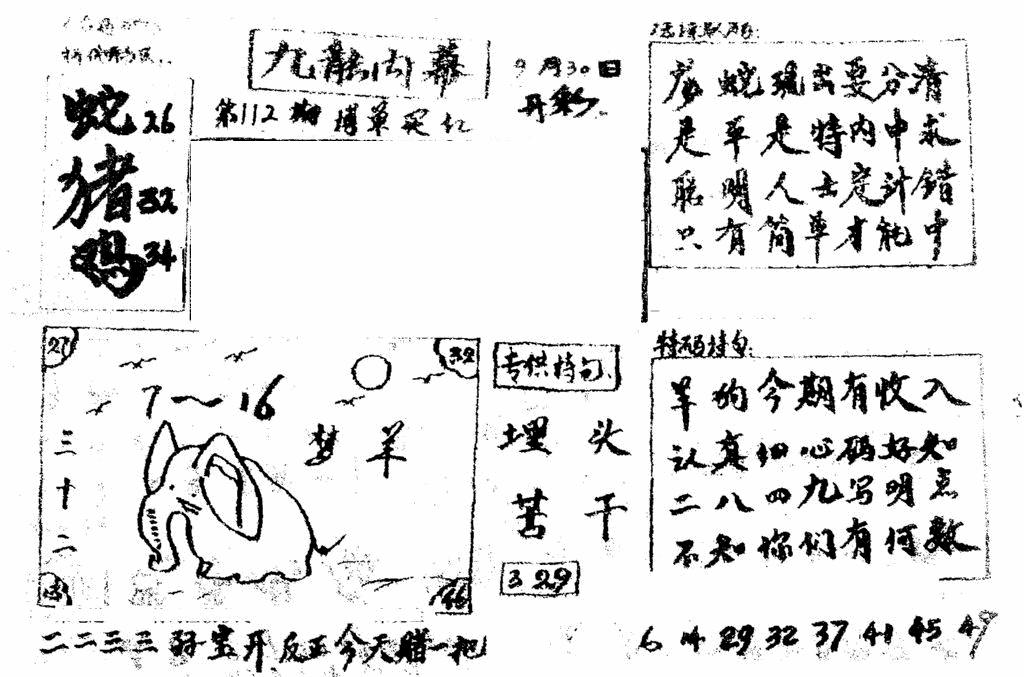 九龍内幕
9月30日
开彩
第112期 博单买红
蛇26
猪32
鸡34
蛇 出要分清
是单是特内中求
聪明人士定计错
只有简单才能中
27
32
7~16
梦羊
三十二
46
专供特句
埋头
苦干
3 29
特码诗句:
羊狗今期有收入
认真细心码好知
二八四九写明点
不知你们有何数
二二三三 宝开反正今天赌一把
6 14 29 32 37 41 45 49